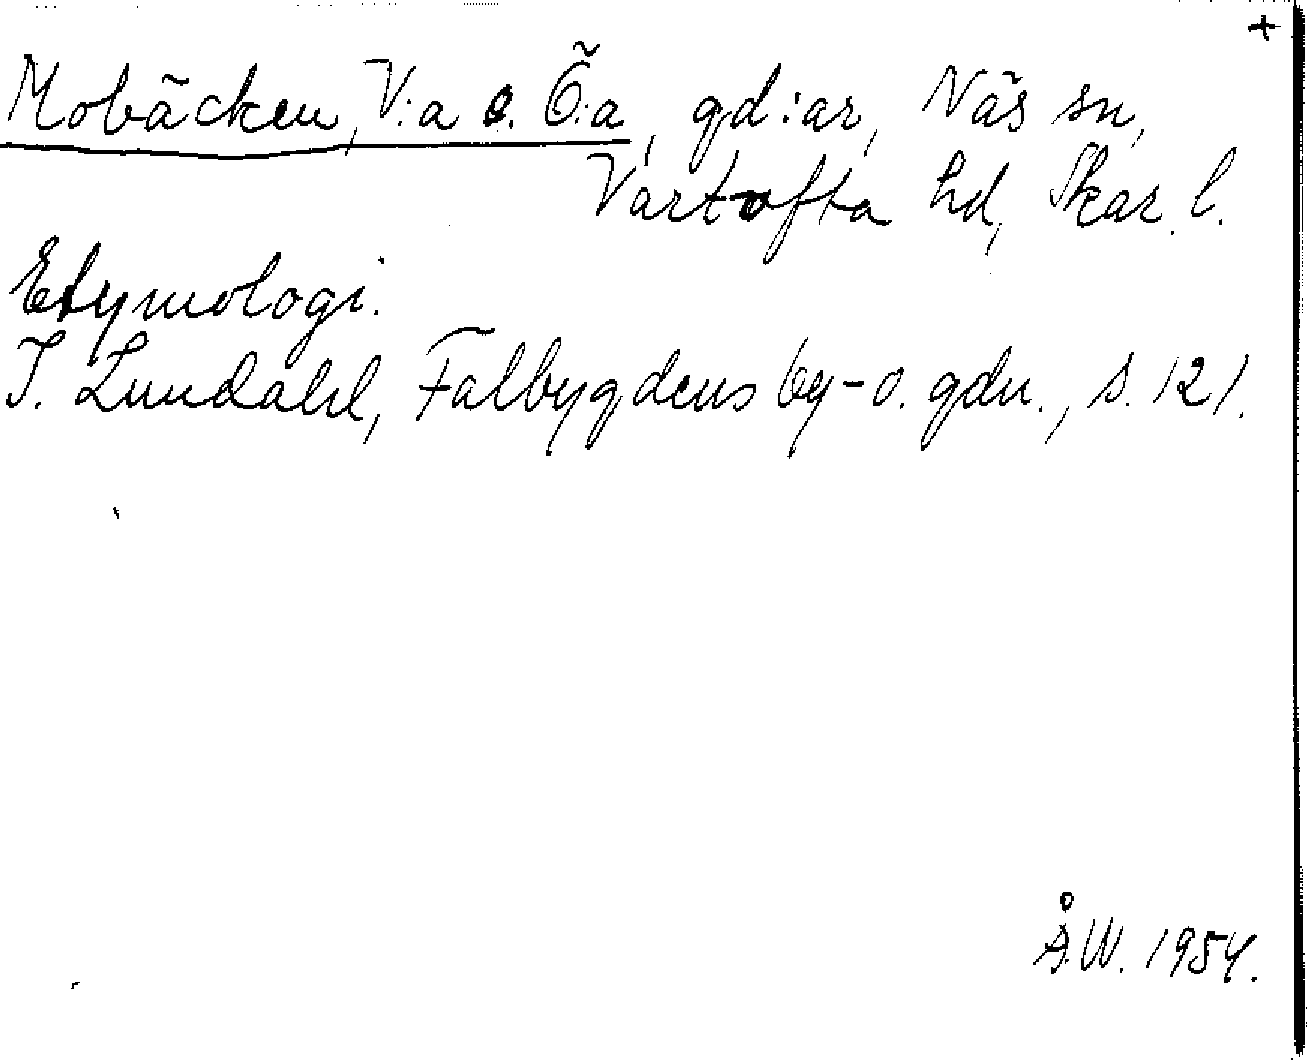 +
Mobäcken, V:a o. Ö:a, gd:ar, Näs sn,
Vartofta hd, Skar. l.
Etymologi.
I. Lundahl, Falbygdens by- o. gdn., s. 121.
Å.W. 1954.